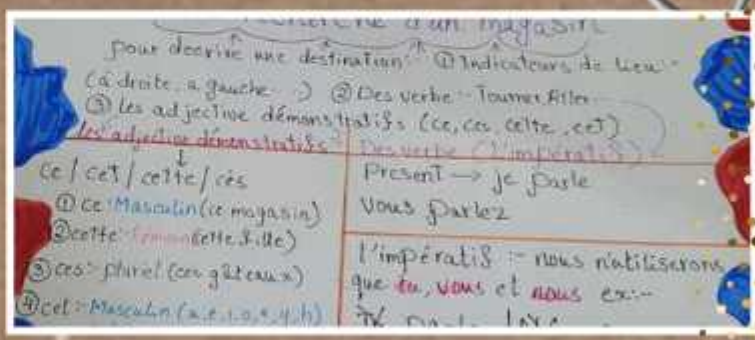 recherche d'un magasin
pour decrire une destination :- ① Indicateurs de lieu :-
(à droite, a gauche ..) ② Des verbe :- Tourner, Aller..
③ les adjective démonstratifs (ce, ces, cette, cet)
les adjective démonstratifs
Des verbe (L'impératif)
ce / cet / cette / cés
① ce :Masculin (ce magasin)
② cette :- Féminin (cette fille)
③ ces :- pluriel (ces gâteaux)
④ cet :- Masculin (a, e, i, o, u, y, h)
Présent → je parle
Vous parlez
l'impératif :- nous n'utiliserons
que tu, vous et nous ex:-